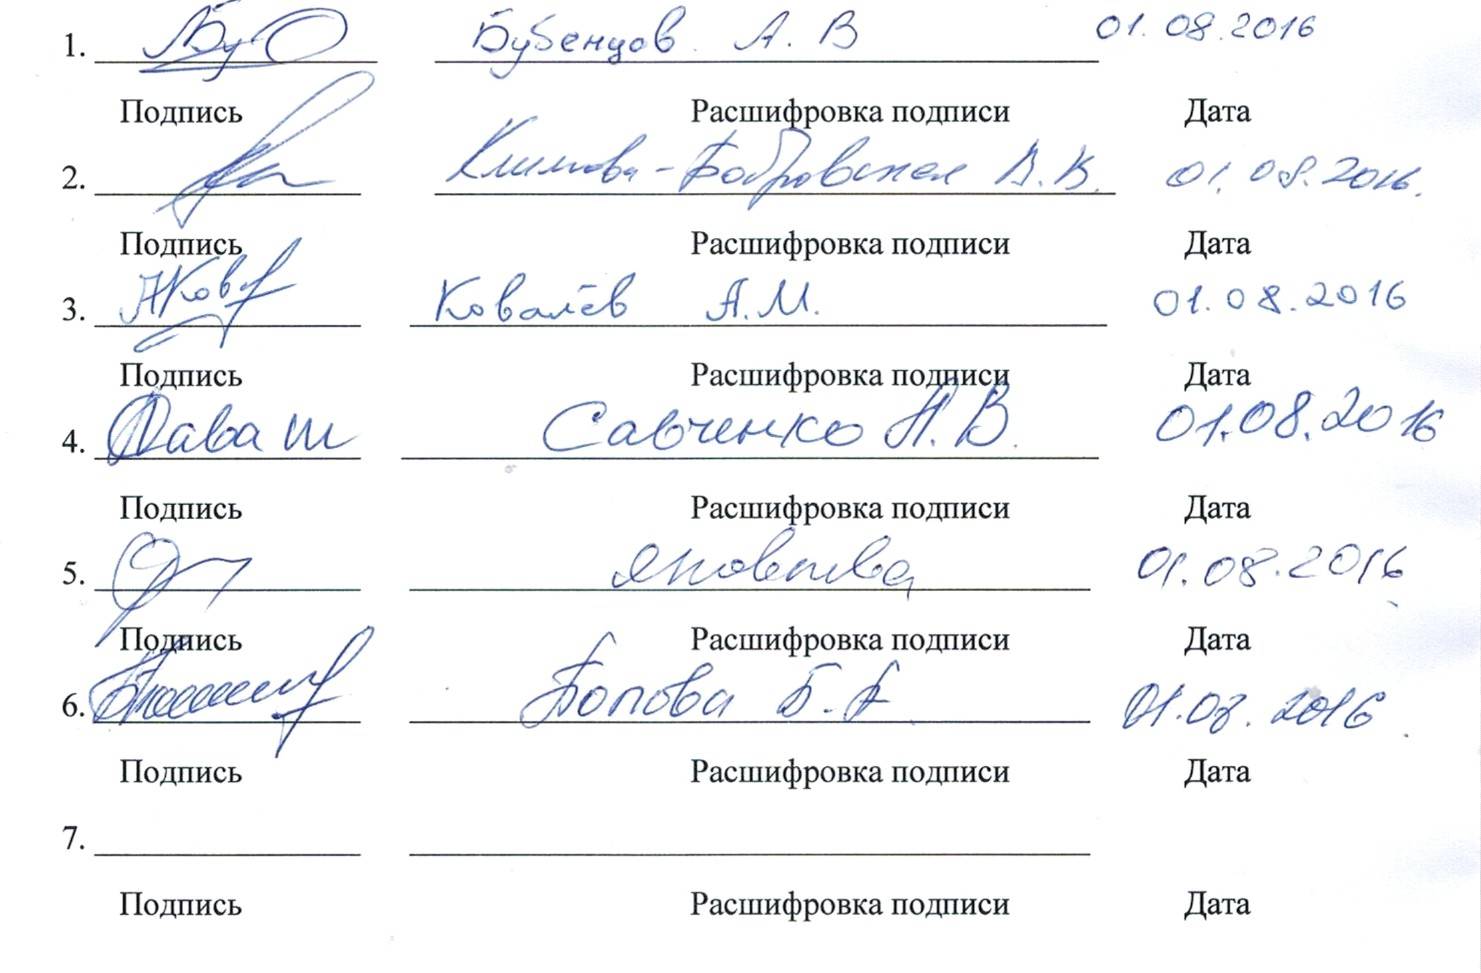 1. Бубенцов А. В 01.08.2016
Подпись Расшифровка подписи Дата
2. Климова-Бобровская В.В. 01.08.2016.
Подпись Расшифровка подписи Дата
3. Ковалёв А.М. 01.08.2016
Подпись Расшифровка подписи Дата
4. Савченко Н.В. 01.08.2016
Подпись Расшифровка подписи Дата
5. 01.08.2016
Подпись Расшифровка подписи Дата
6. Попова Б. А 01.08.2016
Подпись Расшифровка подписи Дата
7.
Подпись Расшифровка подписи Дата